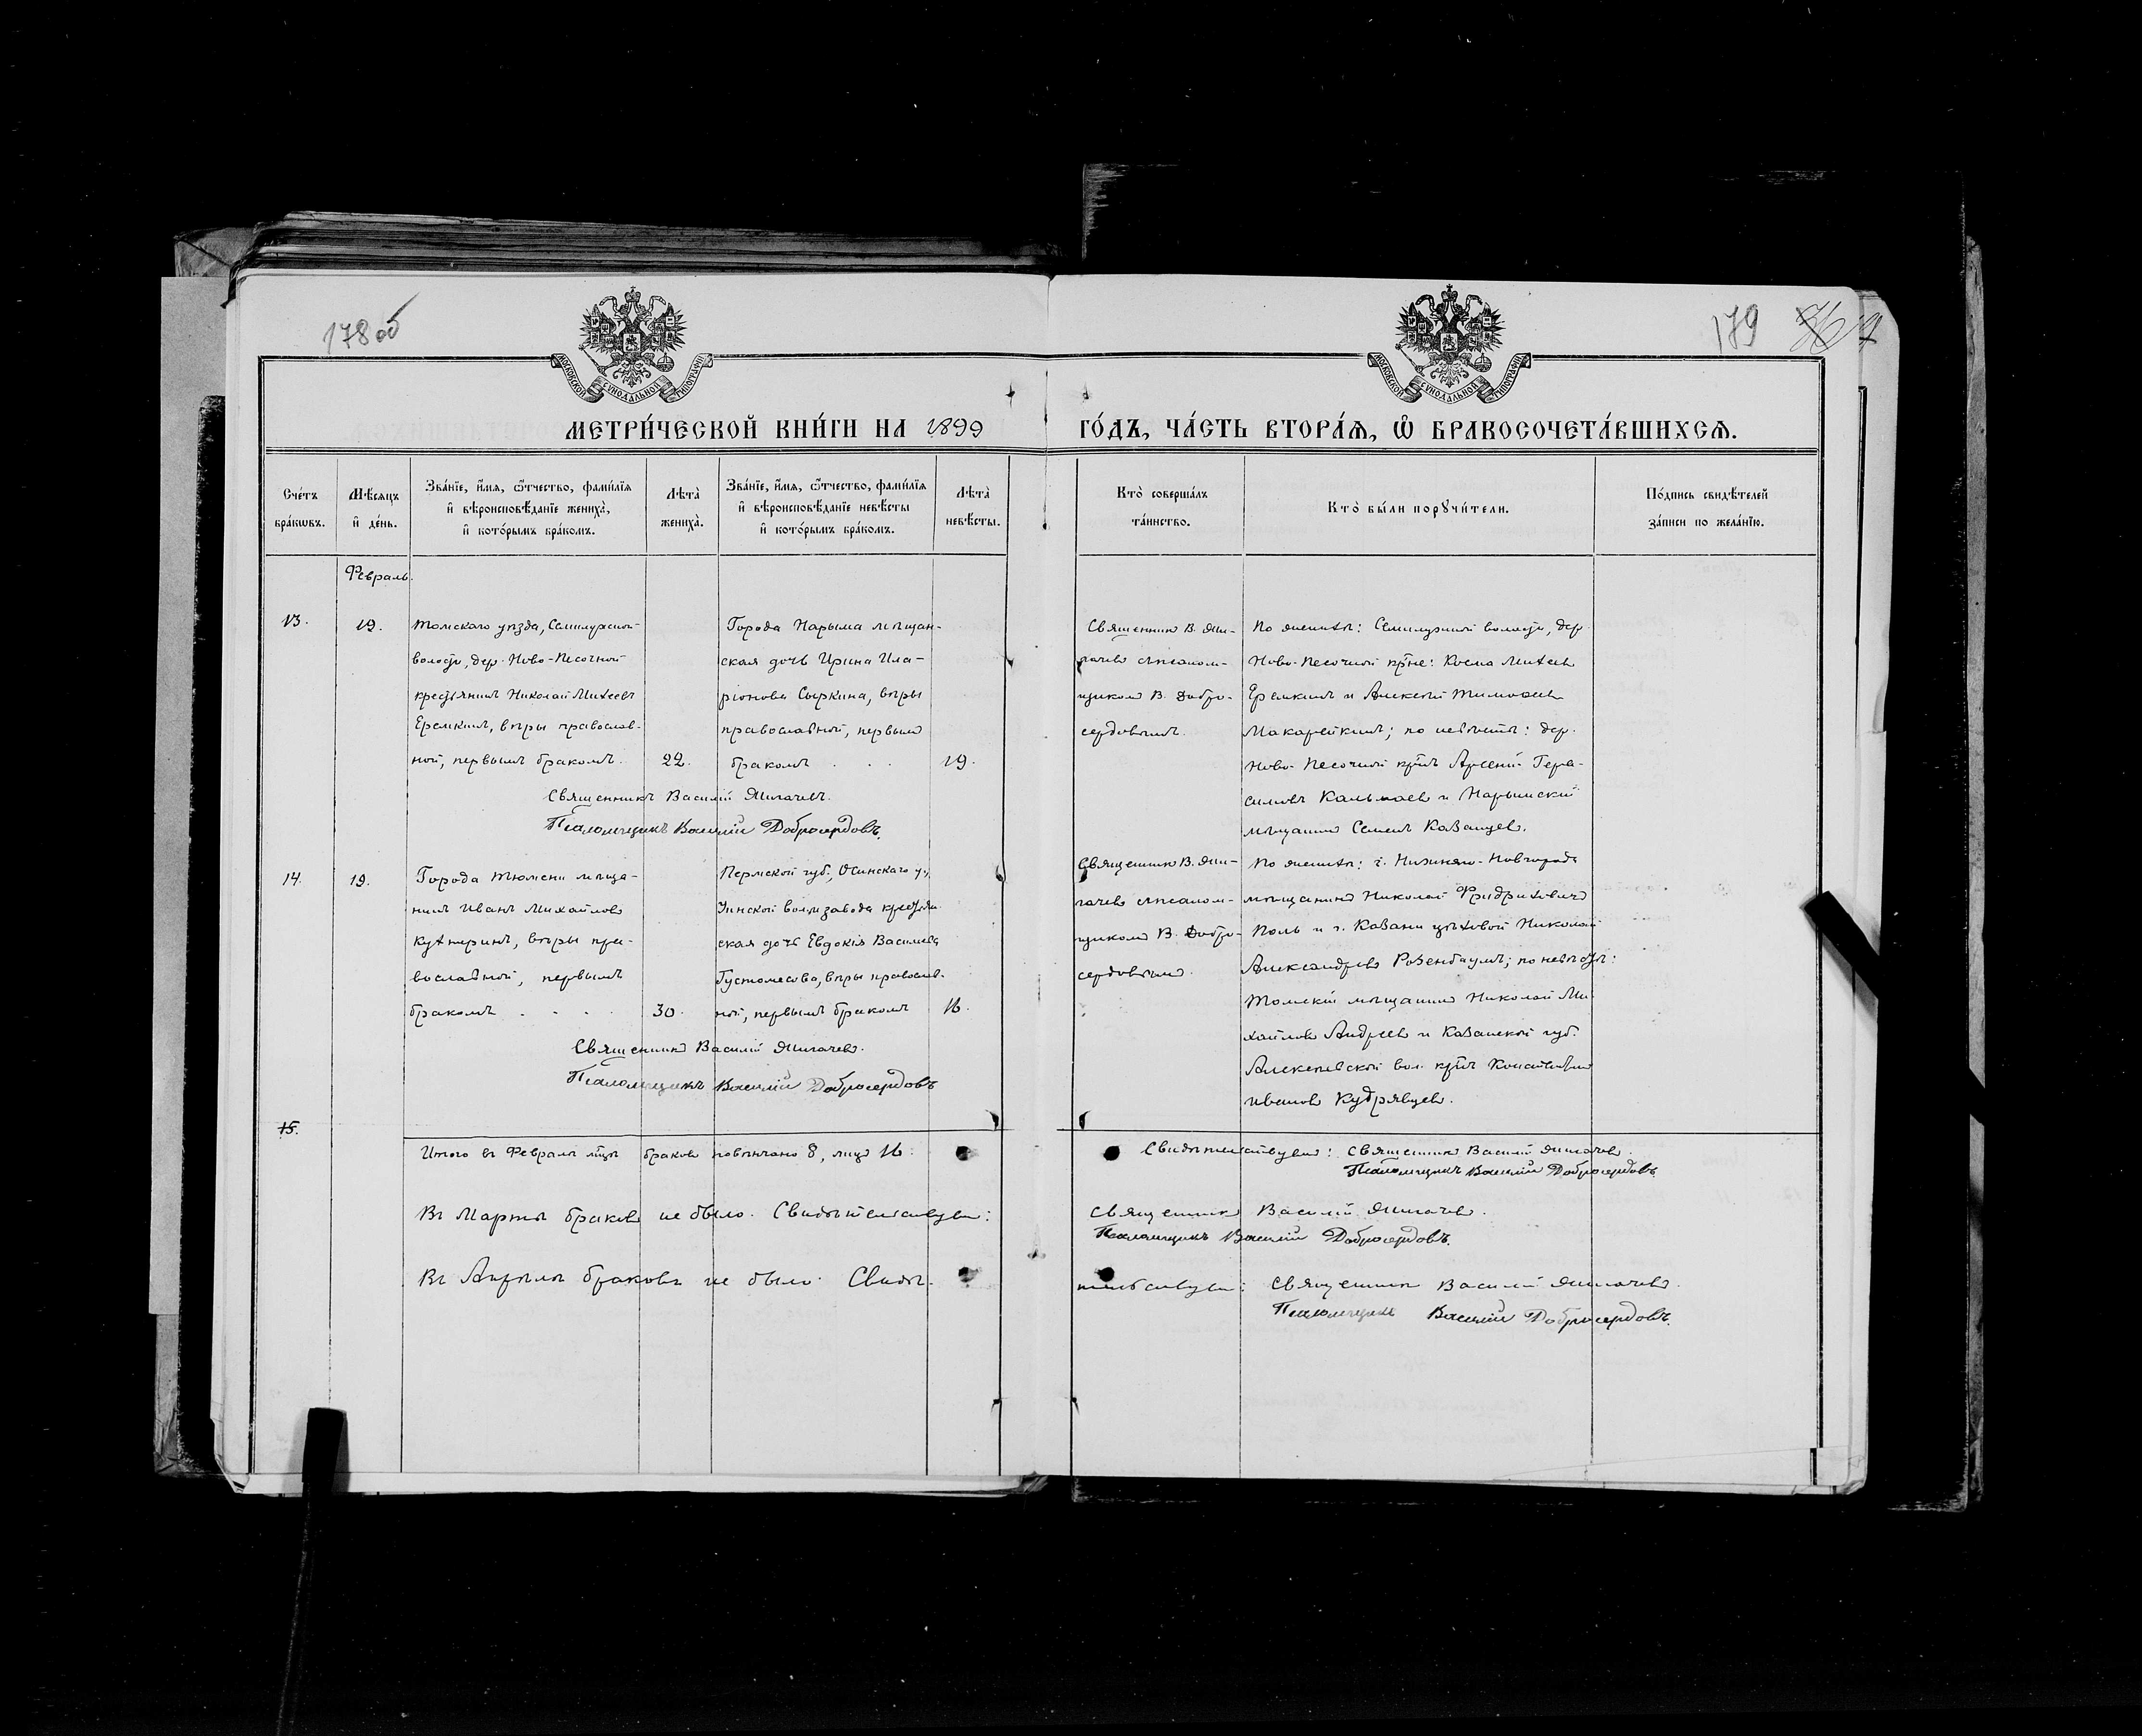 178 об
179
МОСКОВСКОЙ СУНОДАЛЬНОЙ ТИПОГРАФІИ
МОСКОВСКОЙ СУНОДАЛЬНОЙ ТИПОГРАФІИ
МЕТРИ́ЧЕСКОЙ КНИ́ГИ НА 1899
ГО́ДЪ, ЧА́СТЬ ВТОРА́Ѧ, Ѽ БРАКОСОЧЕТА́ВШИХСѦ.
Сче́тъ
бра́кѡвъ.
Мѣ́сѧцъ
и҆ де́нь.
Зва́нїе, и҆́мѧ, ѻ҆́тчество, фамилїѧ
и҆ вѣроисповѣ́данїе жениха̀,
и҆ кото́рымъ бра́комъ.
Лѣта̀
жениха̀.
Зва́нїе, и҆́мѧ, ѻ҆́тчество, фами́лїѧ
и҆ вѣроисповѣ́данїе невѣ́сты
и҆ кото́рымъ бра́комъ.
Лѣта̀
невѣ́сты.
Кто̀ соверша́лъ
та́инство.
Кто̀ бы́ли порꙋчи́тели.
По́дпись свидѣ́телей
за́писи по жела́нїю.
Февраль.
13.
19.
Томскаго уѣзда, Семилужной
волости, дер. Ново-Песочной
крестьянинъ Николай Михеевъ
Еремкинъ, вѣры православ-
ной, первымъ бракомъ.
22.
Города Нарыма мѣщан-
ская дочь Ирина Ила-
ріонова Сыркина, вѣры
православной, первымъ
бракомъ . . .
19.
Священникъ В. Ми-
гачевъ съ псалом-
щикомъ В. Добро-
сердовымъ.
По женихѣ: Семилужной волости, дер.
Ново-Песочной кр̃не: Косма Михеевъ
Еремкинъ и Алексѣй Тимофеевъ
Макарейкинъ; по невѣстѣ: дер.
Ново-Песочной кр̃нъ Арсеній Гера-
симовъ Кальмаевъ и Нарымскій
мѣщанинъ Семенъ Казанцевъ.
Священникъ Василій Мигачевъ.
Псаломщикъ Василій Добросердовъ.
14.
19.
Города Тюмени мѣща-
нинъ Иванъ Михайловъ
Кутыринъ, вѣры пра-
вославной, первымъ
бракомъ . . . .
30.
Пермской губ., Осинскаго у.,
Уинской вол. и завода крестьян-
ская дочь Евдокія Васильева
Густомесова, вѣры православ-
ной, первымъ бракомъ
16.
Священникъ В. Ми-
гачевъ съ псалом-
щикомъ В. Добро-
сердовымъ.
По женихѣ: г. Нижняго-Новгорода
мѣщанинъ Николай Фридриховичъ
Поль и г. Казани цѣховой Николай
Александровъ Розенбаумъ; по невѣстѣ:
Томскій мѣщанинъ Николай Ми-
хайловъ Андреевъ и Казанской губ.
Алексѣевской вол. кр̃нъ Константинъ
Ивановъ Кудрявцевъ.
Священникъ Василій Мигачевъ.
Псаломщикъ Василій Добросердовъ
15.
Итого въ Февралѣ м̃цѣ браковъ повѣнчано 8, лицъ 16.
Свидѣтельствуемъ: Священникъ Василій Мигачевъ.
Псаломщикъ Василій Добросердовъ.
Въ Мартѣ браковъ не было. Свидѣтельствуемъ:
Священникъ Василій Мигачевъ.
Псаломщикъ Василій Добросердовъ.
Въ Апрѣлѣ браковъ не было. Свидѣ-
тельствуемъ: Священникъ Василій Мигачевъ.
Псаломщикъ Василій Добросердовъ.